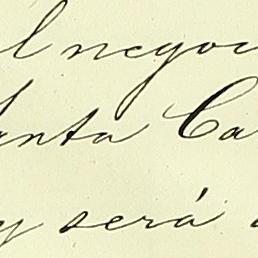 l negoc
Santa Ca
y será